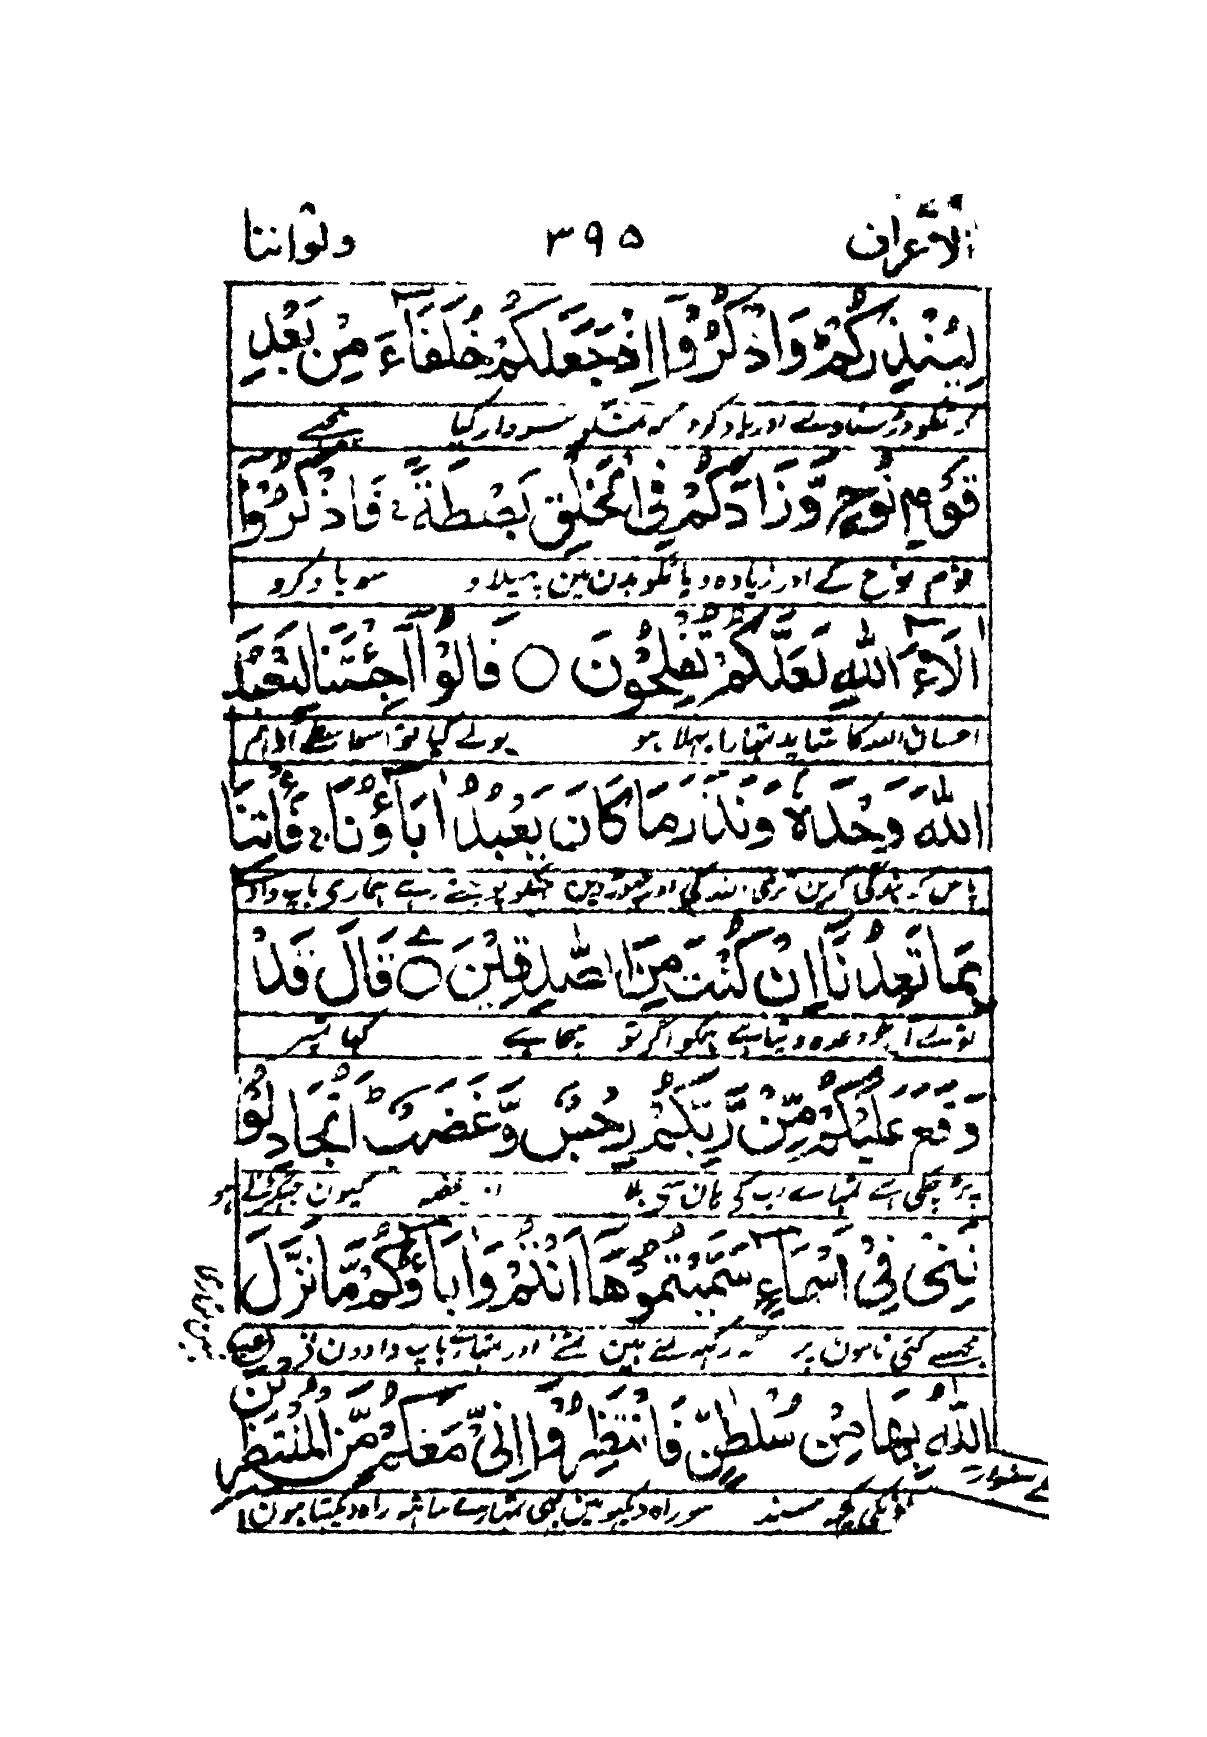 الاعراف ٣٩٥ ولواننا
لِيُنْذِرَكُمْ ؕ وَاذْكُرُوْٓا اِذْ جَعَلَكُمْ خُلَفَآءَ مِنْۢ بَعْدِ
اور یاد کرو کہ تمکو سردار کیا پیچھے
قَوْمِ نُوْحٍ وَّزَادَكُمْ فِى الْخَلْقِ بَصْۜطَةً ۚ فَاذْكُرُوْٓا
قوم نوح کے اور زیادہ دیا تمکو بدن مین پھیلاو سو یاد کرو
اٰلَآءَ اللّٰهِ لَعَلَّكُمْ تُفْلِحُوْنَ ○ قَالُوْٓا اَجِئْتَنَا لِنَعْبُدَ
احسان اللہ کا شاید تمہارا بھلا ہو بولے کیا تو اسواسطے آیا ہم
اللّٰهَ وَحْدَهٗ وَنَذَرَ مَا كَانَ يَعْبُدُ اٰبَآؤُنَا ۚ فَاْتِنَا
پاس کہ بندگی کرین نری اللہ کی اور چھوڑ دین جنکو پوجتے رہے ہماری باپ دادے
بِمَا تَعِدُنَآ اِنْ كُنْتَ مِنَ الصّٰدِقِيْنَ ○ قَالَ قَدْ
تو لے آ جو وعدہ دیتا ہے ہمکو اگر تو سچا ہے کہا
وَقَعَ عَلَيْكُمْ مِّنْ رَّبِّكُمْ رِجْسٌ وَّغَضَبٌ ؕ اَتُجَادِلُوْ
پڑ چکی ہے تمپر تمہارے رب کے ہان سی بلا اور غصہ کیون جھگڑتے ہو
نَنِىْ فِىْٓ اَسْمَآءٍ سَمَّيْتُمُوْهَآ اَنْتُمْ وَاٰبَآؤُكُمْ مَّا نَزَّلَ
مجھسے کئی نامون پر کہ رکھ لئے ہین تمنے اور تمہارے باپ دادون نے
اللّٰهُ بِهَا مِنْ سُلْطٰنٍ ؕ فَانْتَظِرُوْٓا اِنِّىْ مَعَكُمْ مِّنَ الْمُنْتَظِرِيْنَ
انکی کچھ سند سو راہ دیکھو مین بھی تمہارے ساتھ راہ دیکھتا ہون